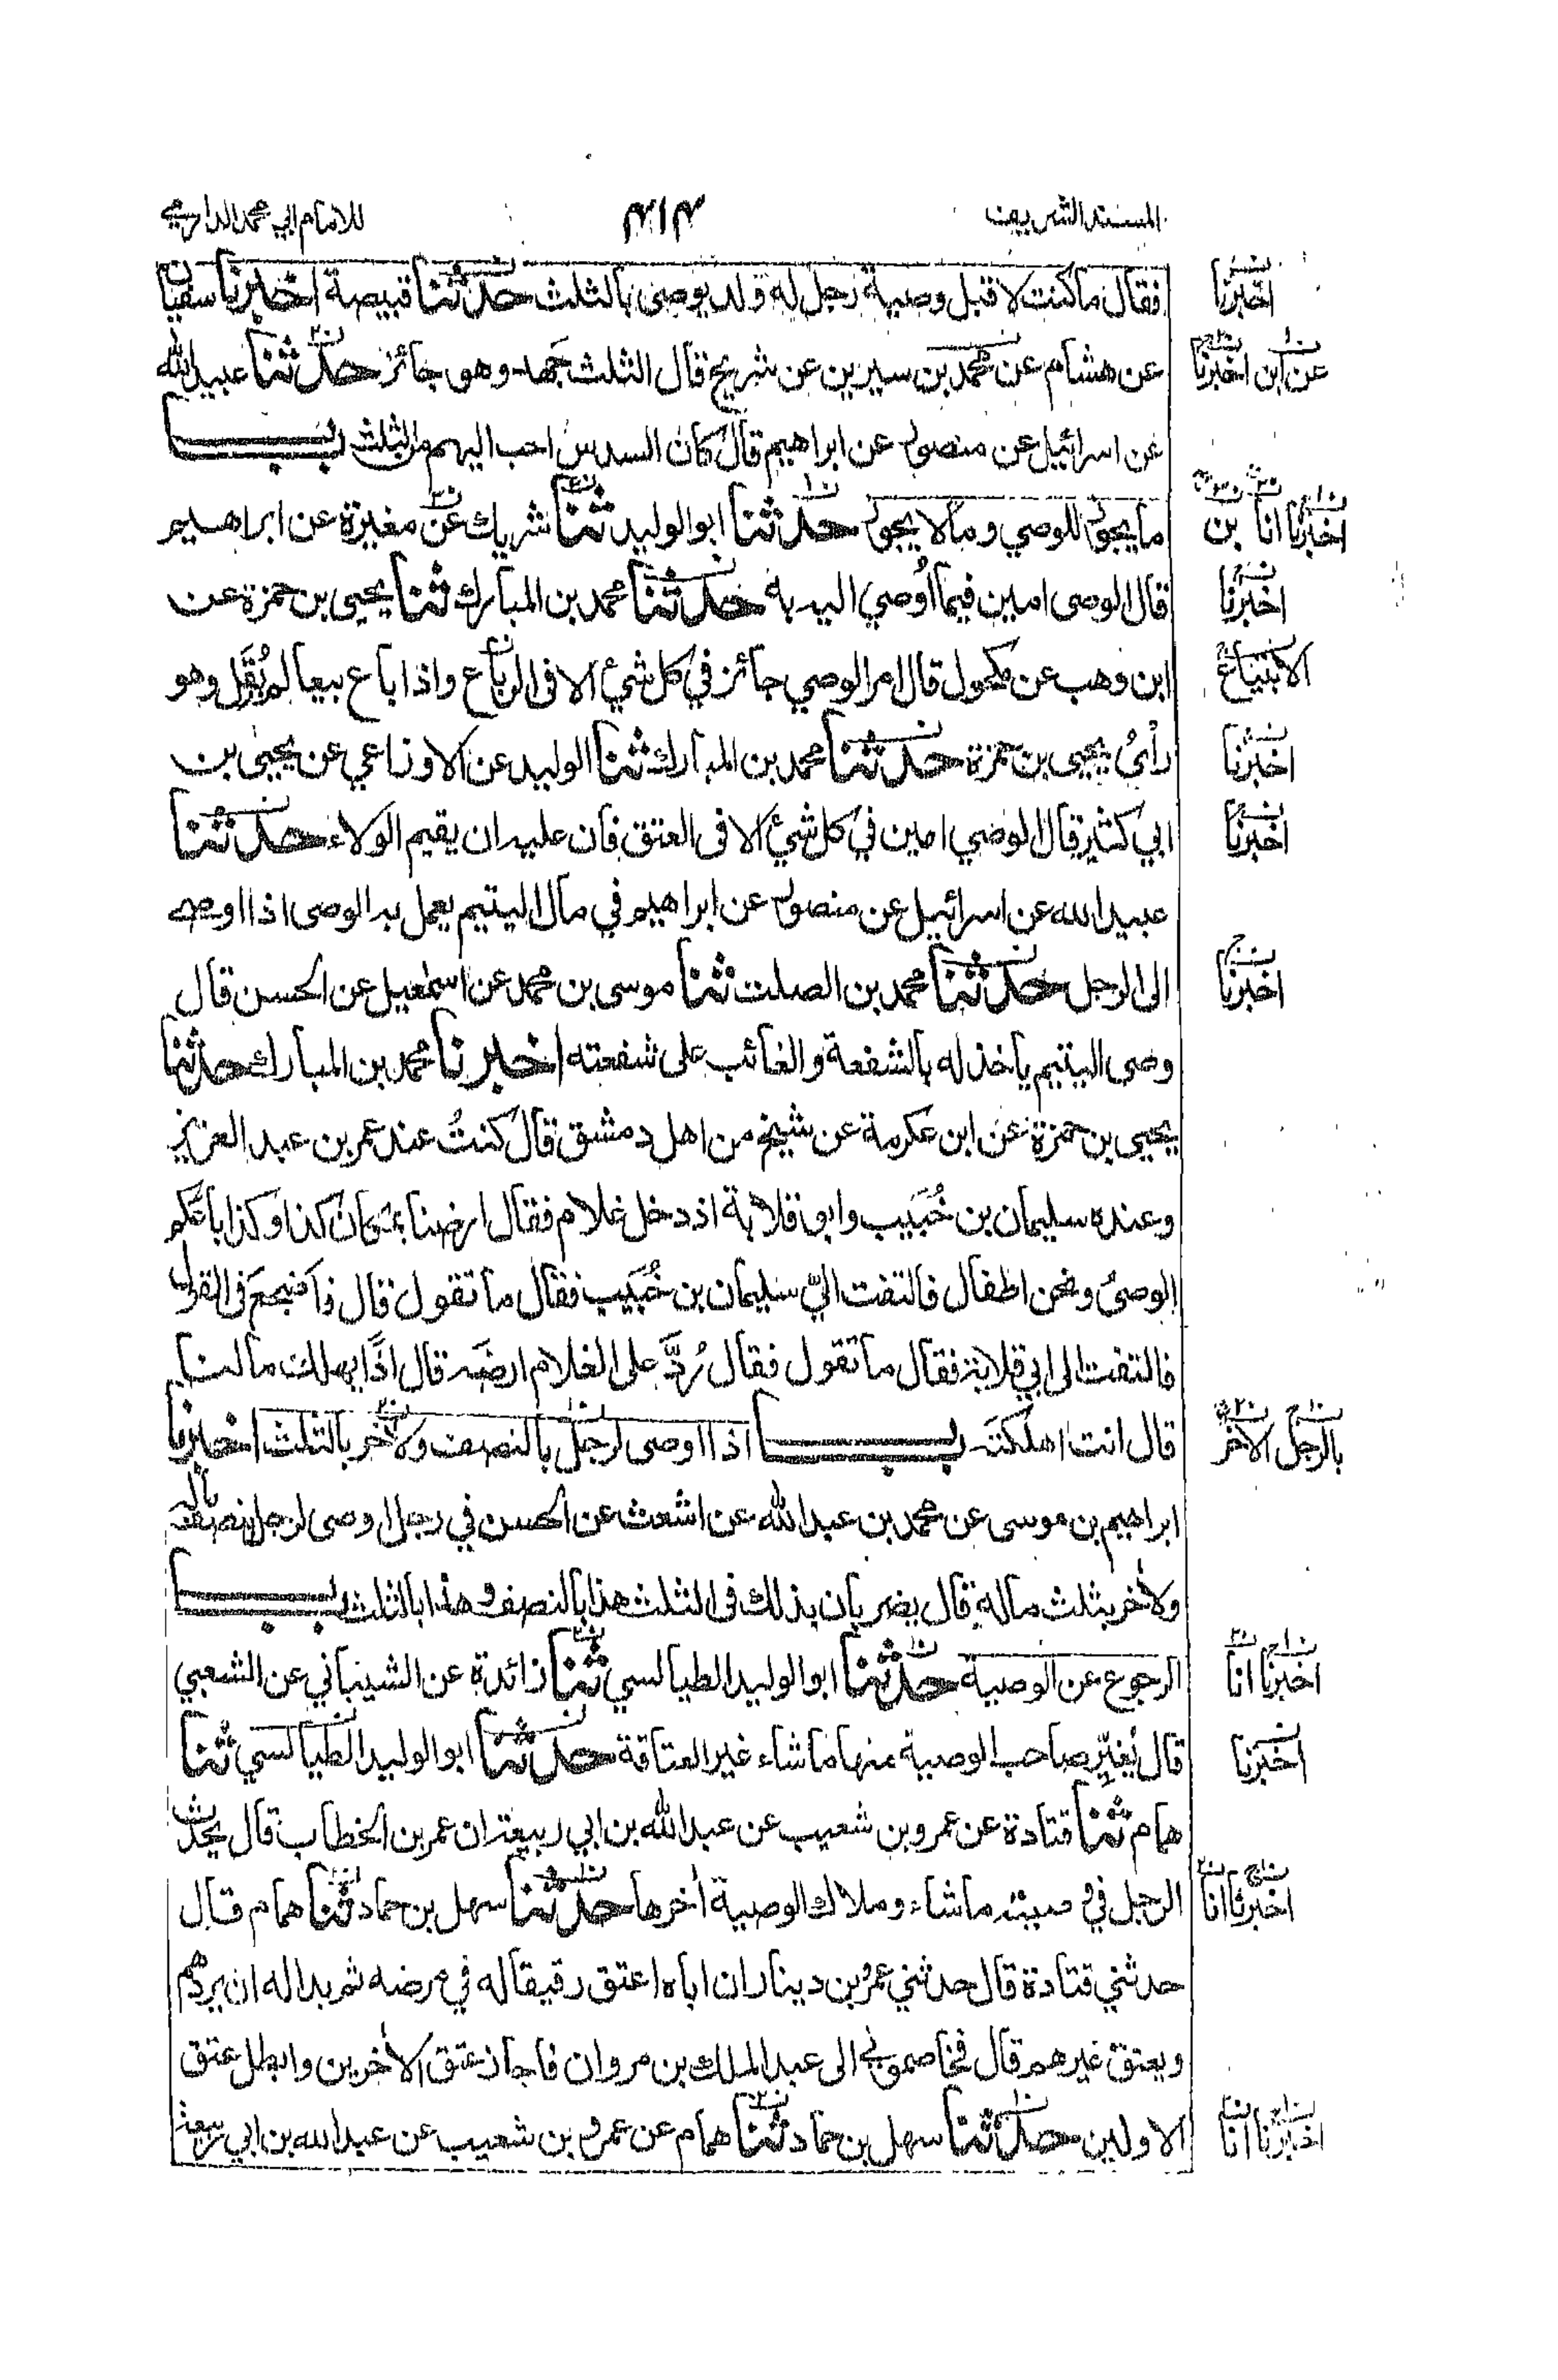 المسند الشريف ٤١٤ للامام ابي محمد الدارمي
فقال ما كنت لا قبل وصية رجل له ولد يوصى بالثلث حدثنا قبيصة اخبرنا سفيان
عن هشام عن محمد بن سيرين عن شريح قال الثلث جهد وهو جائز حدثنا عبيد الله
عن اسرائيل عن منصور عن ابراهيم قال كان السدس احب اليهم من الثلث باب
ما يجوز للوصي وما لا يجوز حدثنا ابو الوليد ثنا شريك عن مغيرة عن ابراهيم
قال الوصى امين فيما اُوصي اليه به حدثنا محمد بن المبارك ثنا يحيى بن حمزة عن
ابن وهب عن مكحول قال امر الوصي جائز في كل شئ الا فى الرباع واذا باع بيعا لم يُقَل وهو
رأىُ يحيى بن حمزة حدثنا محمد بن المبارك ثنا الوليد عن الاوزاعي عن يحيى بن
ابي كثير قال الوصي امين في كل شئ الا فى العتق فان عليه ان يقيم الولاء حدثنا
عبيد الله عن اسرائيل عن منصور عن ابراهيم في مال اليتيم يعمل به الوصى اذا اوصى
الى الرجل حدثنا محمد بن الصلت ثنا موسى بن محمد عن اسمٰعيل عن الحسن قال
وصى اليتيم ياخذ له بالشفعة والغائب على شفعته اخبرنا محمد بن المبارك حدثنا
يحيى بن حمزة عن ابن عكرمة عن شيخ من اهل دمشق قال كنتُ عند عمر بن عبد العزيز
وعنده سليمان بن حُبَيب وابو قلابة اذ دخل غلام فقال ارضنا بمكان كذا وكذا باعكم
الوصىُ ونحن اطفال فالتفت الىّ سليمان بن حُبَيب فقال ما تقول قال فاضجع فى القول
فالتفت الى ابي قلابة فقال ما تقول فقال رُدَّ على الغلام ارضَه قال اذًا يهلك مالنا
قال انت اهلكتَه باب اذا اوصى لرجل بالنصف ولاٰخر بالثلث اخبرنا
ابراهيم بن موسى عن محمد بن عبد الله عن اشعث عن الحسن في رجل اوصى لرجل بنصف ماله
ولاٰخر بثلث ماله قال يضربان بذلك فى الثلث هذا بالنصف وهذا بالثلث باب
الرجوع عن الوصية حدثنا ابو الوليد الطيالسي ثنا زائدة عن الشيباني عن الشعبي
قال يُغيّر صاحب الوصية منها ما شاء غير العتاقة حدثنا ابو الوليد الطيالسي ثنا
همام ثنا قتادة عن عمرو بن شعيب عن عبد الله بن ابي ربيعة ان عمر بن الخطاب قال يحدث
الرجل في وصيته ما شاء وملاك الوصية اٰخرها حدثنا سهل بن حماد ثنا همام قال
حدثني قتادة قال حدثني عمرو بن دينار ان اباه اعتق رقيقا له في مرضه ثم بدا له ان يردهم
ويعتق غيرهم قال فخاصموني الى عبد الملك بن مروان فاجاز عتق الاٰخرين وابطل عتق
الاولين حدثنا سهل بن حماد ثنا همام عن عمرو بن شعيب عن عبد الله بن ابي ربيعة
اخبرنا
عن ابن اخبرنا
اخبرنا انا بن
اخبرنا
الابتياع
اخبرنا
اخبرنا
اخبرنا
بالرجل الاخر
اخبرنا انا
اخبرنا
اخبرنا انا
اخبرنا انا